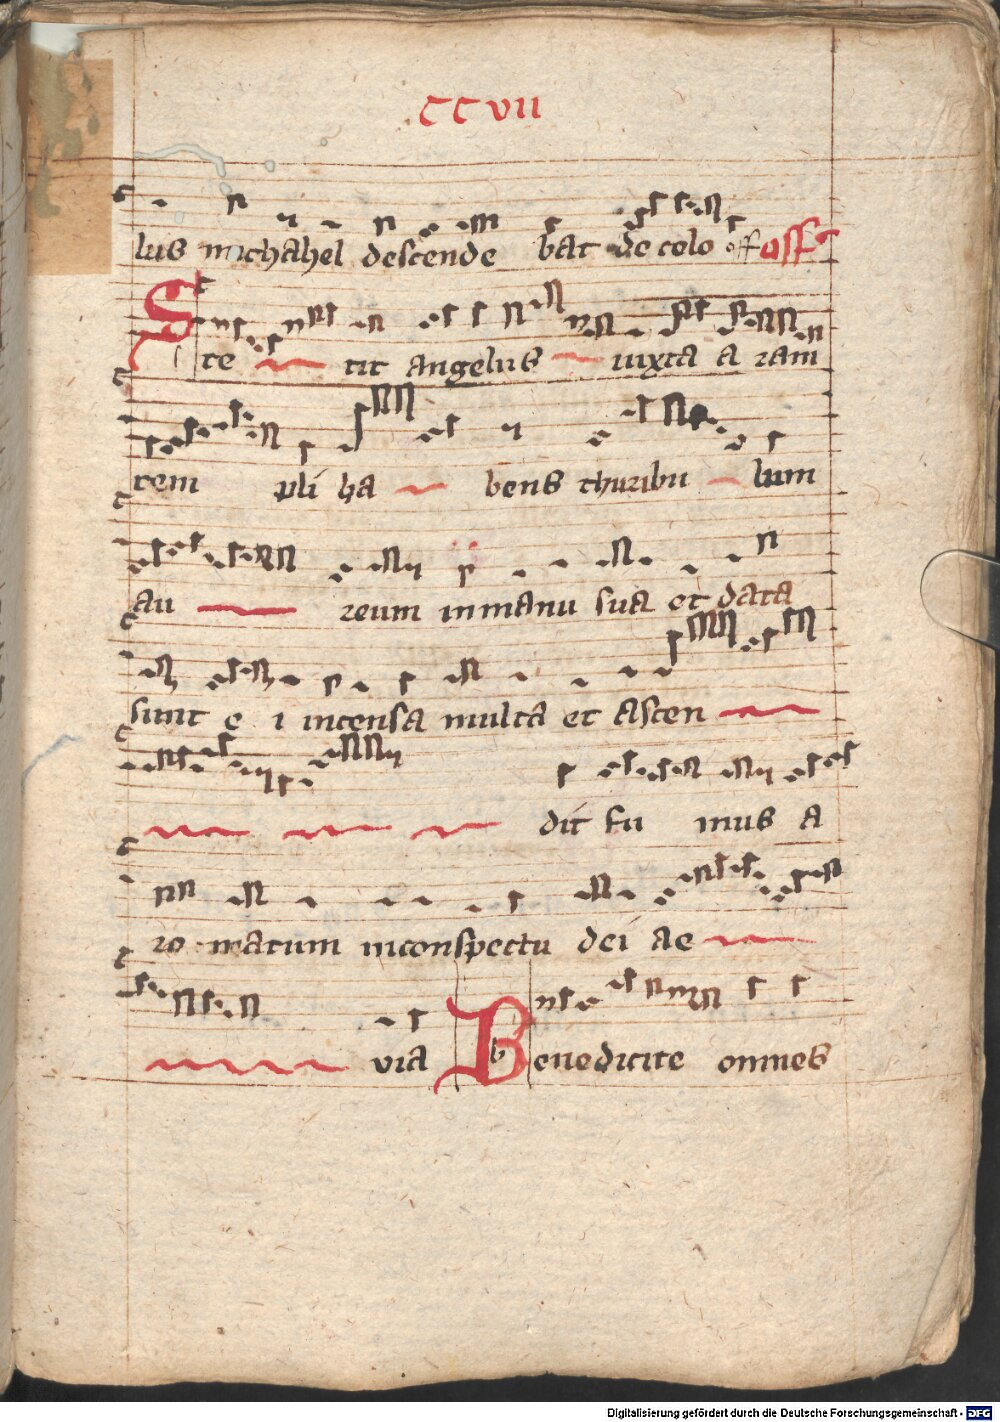 CCVII
lus michahel descende bat de celo off off
Ste tit angelus iuxta a ram
tem pli ha bens thuribu lum
au reum in manu sua et data
sunt e i incensa multa et ascen
dit fu mus a
ro matum in conspectu dei ae
via Benedicite omnes
Digitalisierung gefördert durch die Deutsche Forschungsgemeinschaft - DFG